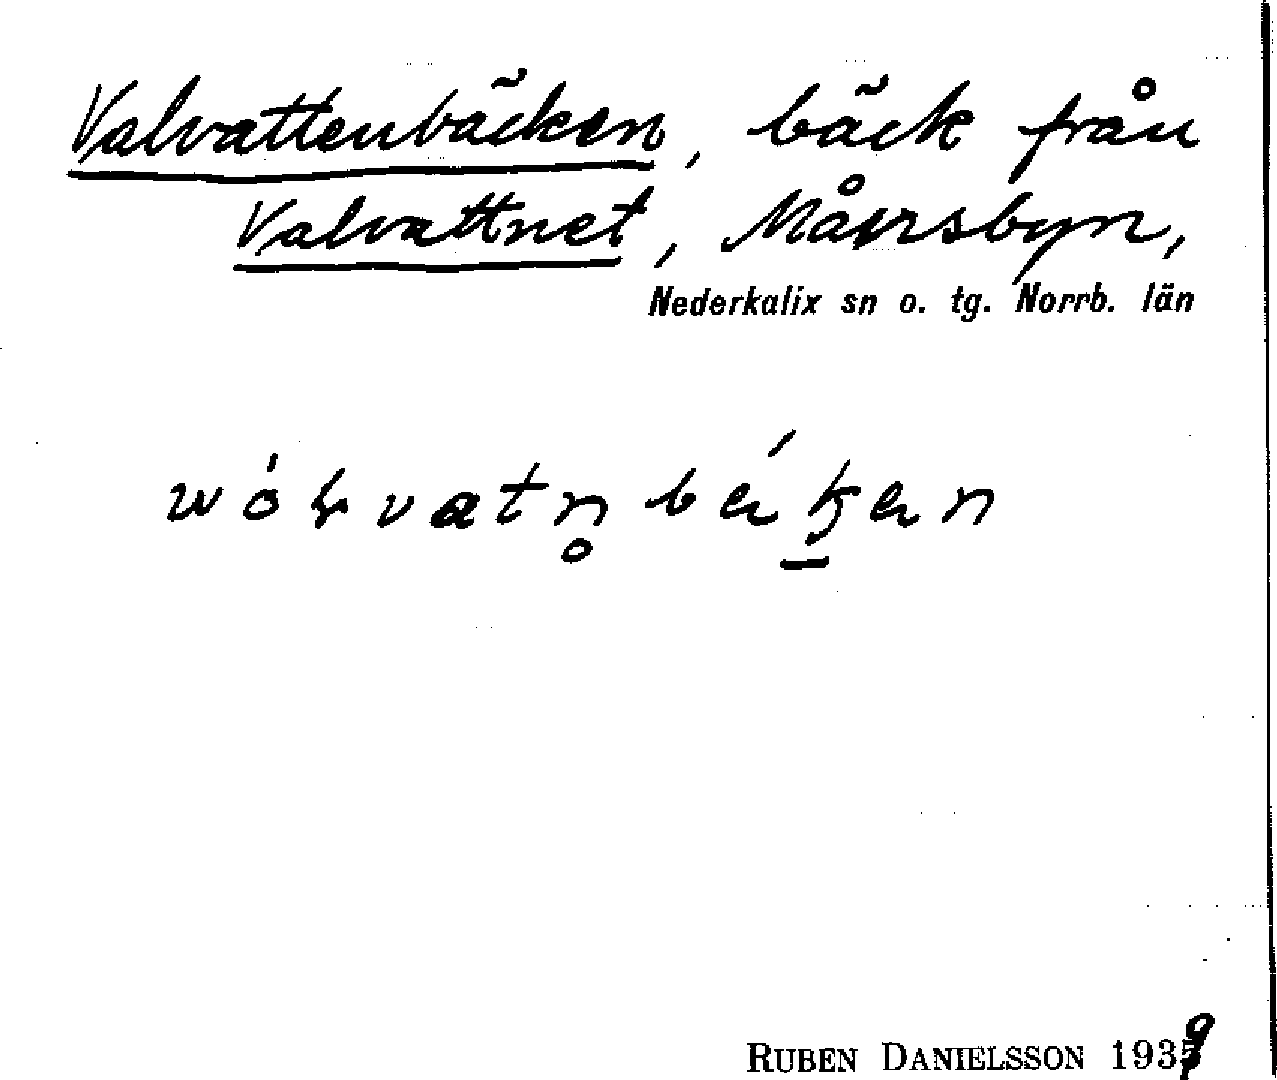 Valvattenbäcken, bäck från
Valvattnet, Månsbyn,
Nederkalix sn o. tg. Norrb. län
RUBEN DANIELSSON 1939